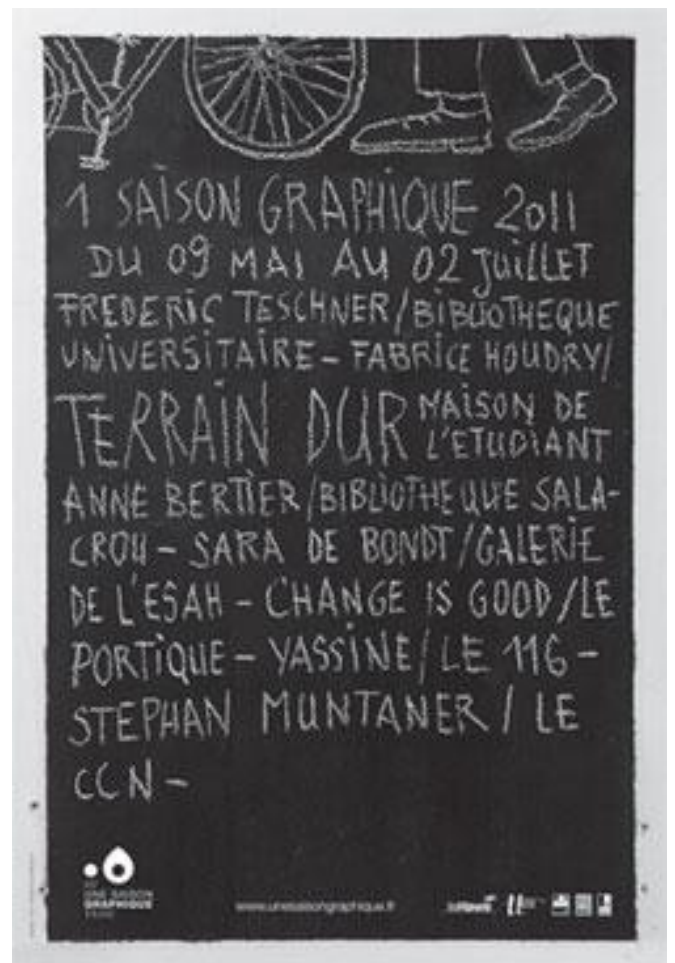 1 SAISON GRAPHIQUE 2011
DU 09 MAI AU 02 JUILLET
FREDERIC TESCHNER/BIBLIOTHEQUE
UNIVERSITAIRE - FABRICE HOUDRY/
TERRAIN DUR MAISON DE
L'ETUDIANT
ANNE BERTIER/BIBLIOTHEQUE SALA-
CROU - SARA DE BONDT/GALERIE
DE L'ESAH - CHANGE IS GOOD/LE
PORTIQUE - YASSINE/LE 116 -
STEPHAN MUNTANER/LE
CCN -
UNE SAISON
GRAPHIQUE
www.unesaisongraphique.fr